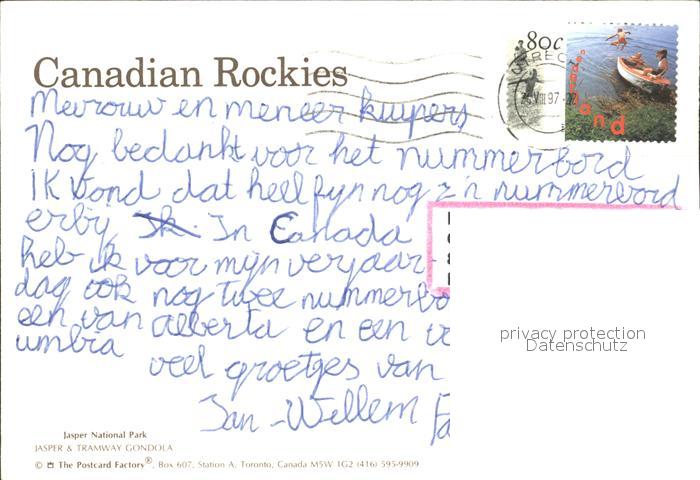 Canadian Rockies
80c
UTRECHT
VIII 97
nederland
Mevrouw en meneer kuipers
Nog bedankt voor het nummerbord
Ik vond dat heel fijn nog z'n nummerbord
erbij Ik In Canada
heb ik voor mijn verjaar-
dag ook nog twee nummerbo
een van Alberta en een
umbia
veel groetjes van
Jan-Willem
privacy protection
Datenschutz
Jasper National Park
JASPER & TRAMWAY GONDOLA
© The Postcard Factory®, Box 607, Station A. Toronto, Canada M5W 1G2 (416) 595-9909